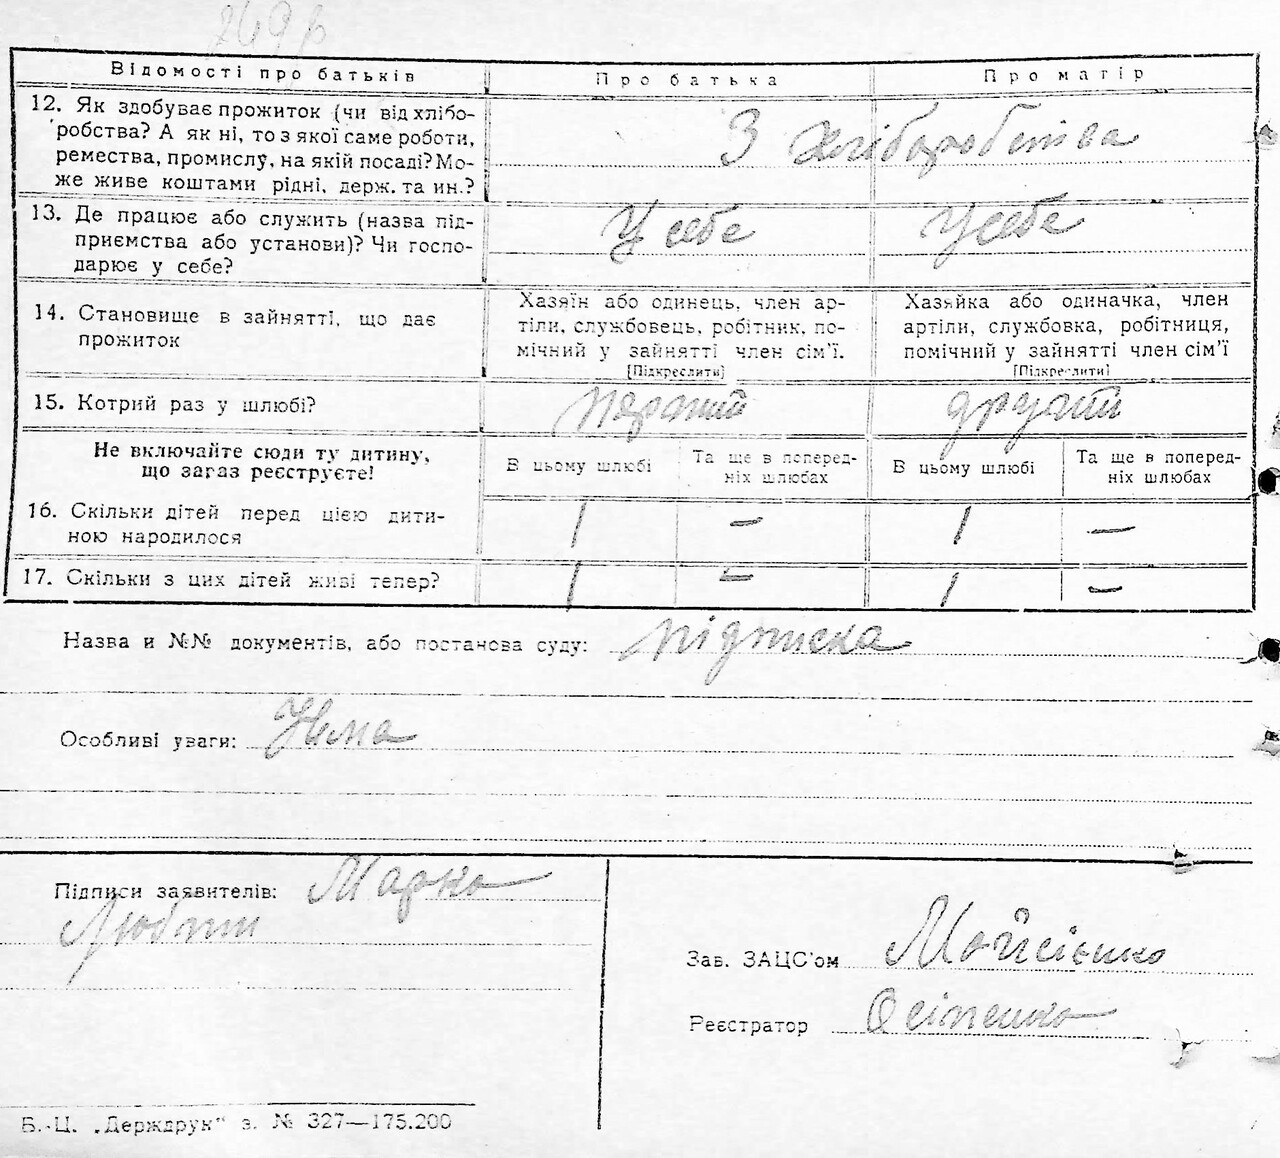 269р
Відомості про батьків Про батька Про матір
12. Як здобуває прожиток (чи від хлібо-
робства? А як ні, то з якої саме роботи,
ремества, промислу, на якій посаді? Мо-
же живе коштами рідні, держ. та ин.?
З хліборобства
13. Де працює або служить (назва під-
приємства або установи)? Чи госпо-
дарює у себе?
У себе У себе
14. Становище в зайнятті, що дає
прожиток
Хазяїн або одинець, член ар-
тіли, службовець, робітник, по-
мічний у зайнятті член сім'ї.
[Підкреслити]
Хазяйка або одиначка, член
артіли, службовка, робітниця,
помічний у зайнятті член сім'ї
[Підкреслити]
15. Котрий раз у шлюбі? перший другий
Не включайте сюди ту дитину,
що загаз реєструєте!
В цьому шлюбі Та ще в поперед-
ніх шлюбах В цьому шлюбі Та ще в поперед-
ніх шлюбах
16. Скільки дітей перед цією дити-
ною народилося
1 — 1 —
17. Скільки з цих дітей живі тепер? 1 — 1 —
Назва и №№ документів, або постанова суду: підписка
Особливі уваги: Нема
Підписи заявителів: Марко
Зав. ЗАЦС'ом Мойсієнко
Реєстратор Осіпенко
Б.-Ц. „Держдрук" з. № 327—175.200